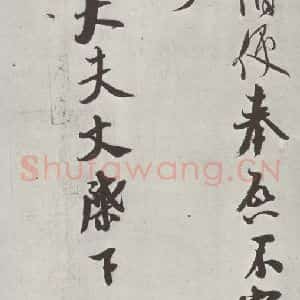 便奉啓不
大夫丈棨下
Shufawang.CN